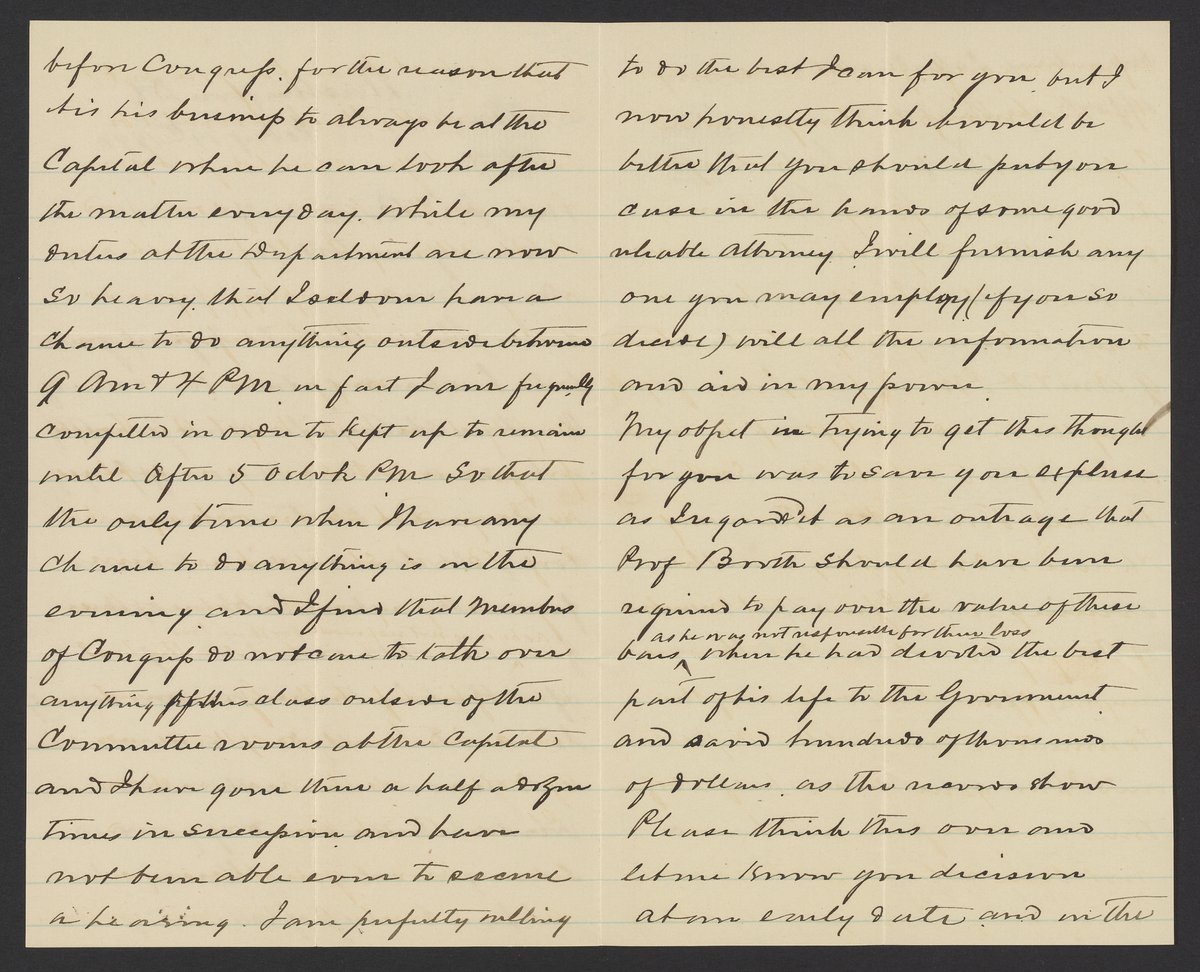 before Congress. for the reason that
its his business to always be at the
Capital where he can look after
the matter every day. While my
duties at the Department are now
so heavy that I seldom have a
chance to do anything outside between
9 Am & 4 PM in fact I am frequently
compelled in order to kept up to remain
until after 5 Oclok PM So that
the only time when I have any
chance to do anything is in the
evening and I find that Members
of Congress do not care to talk over
anything of this class outside of the
Committee rooms at the Capital
and I have gone there a half a dozen
times in succession and have
not been able even to secure
a hearing. I am perfectly willing
to do the best I can for you, but I
now honestly think it would be
better that you should put your
case in the hands of some good
reliable attorney. I will furnish any
one you may employ (if you so
decide) will all the information
and aid in my power.
My object in trying to get this through
for you was to save you expense
as I regarded it as an outrage that
Prof Booth should have been
required to pay over the value of these
as he was not responsible for their loss
bars, when he had devoted the best
part of his life to the Government
and saved hundreds of thousands
of dollars, as the records show
Please think this over and
let me know your decision
at an early date and in the